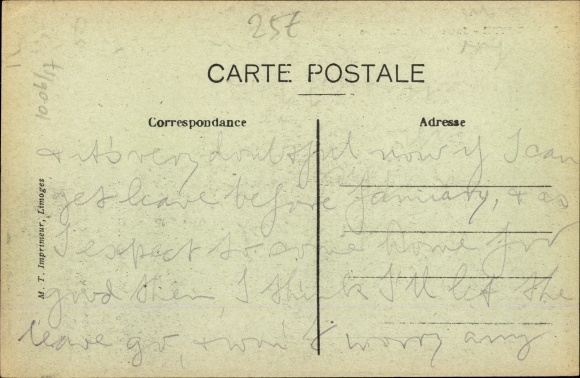 257
CARTE POSTALE
Correspondance
Adresse
M. T. Imprimeur, Limoges
& it's very doubtful now if I can
get leave before January, & as
I expect to come home for
good then, I think I'll let the
leave go, & won't worry any